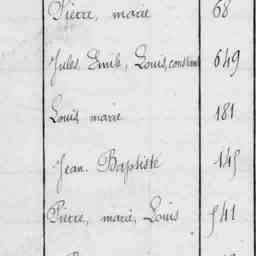 Pierre, marie 68
Jules, Emile, Louis, constant 649
Louis marie 181
Jean. Baptiste 145
Pierre, marie, Louis 541